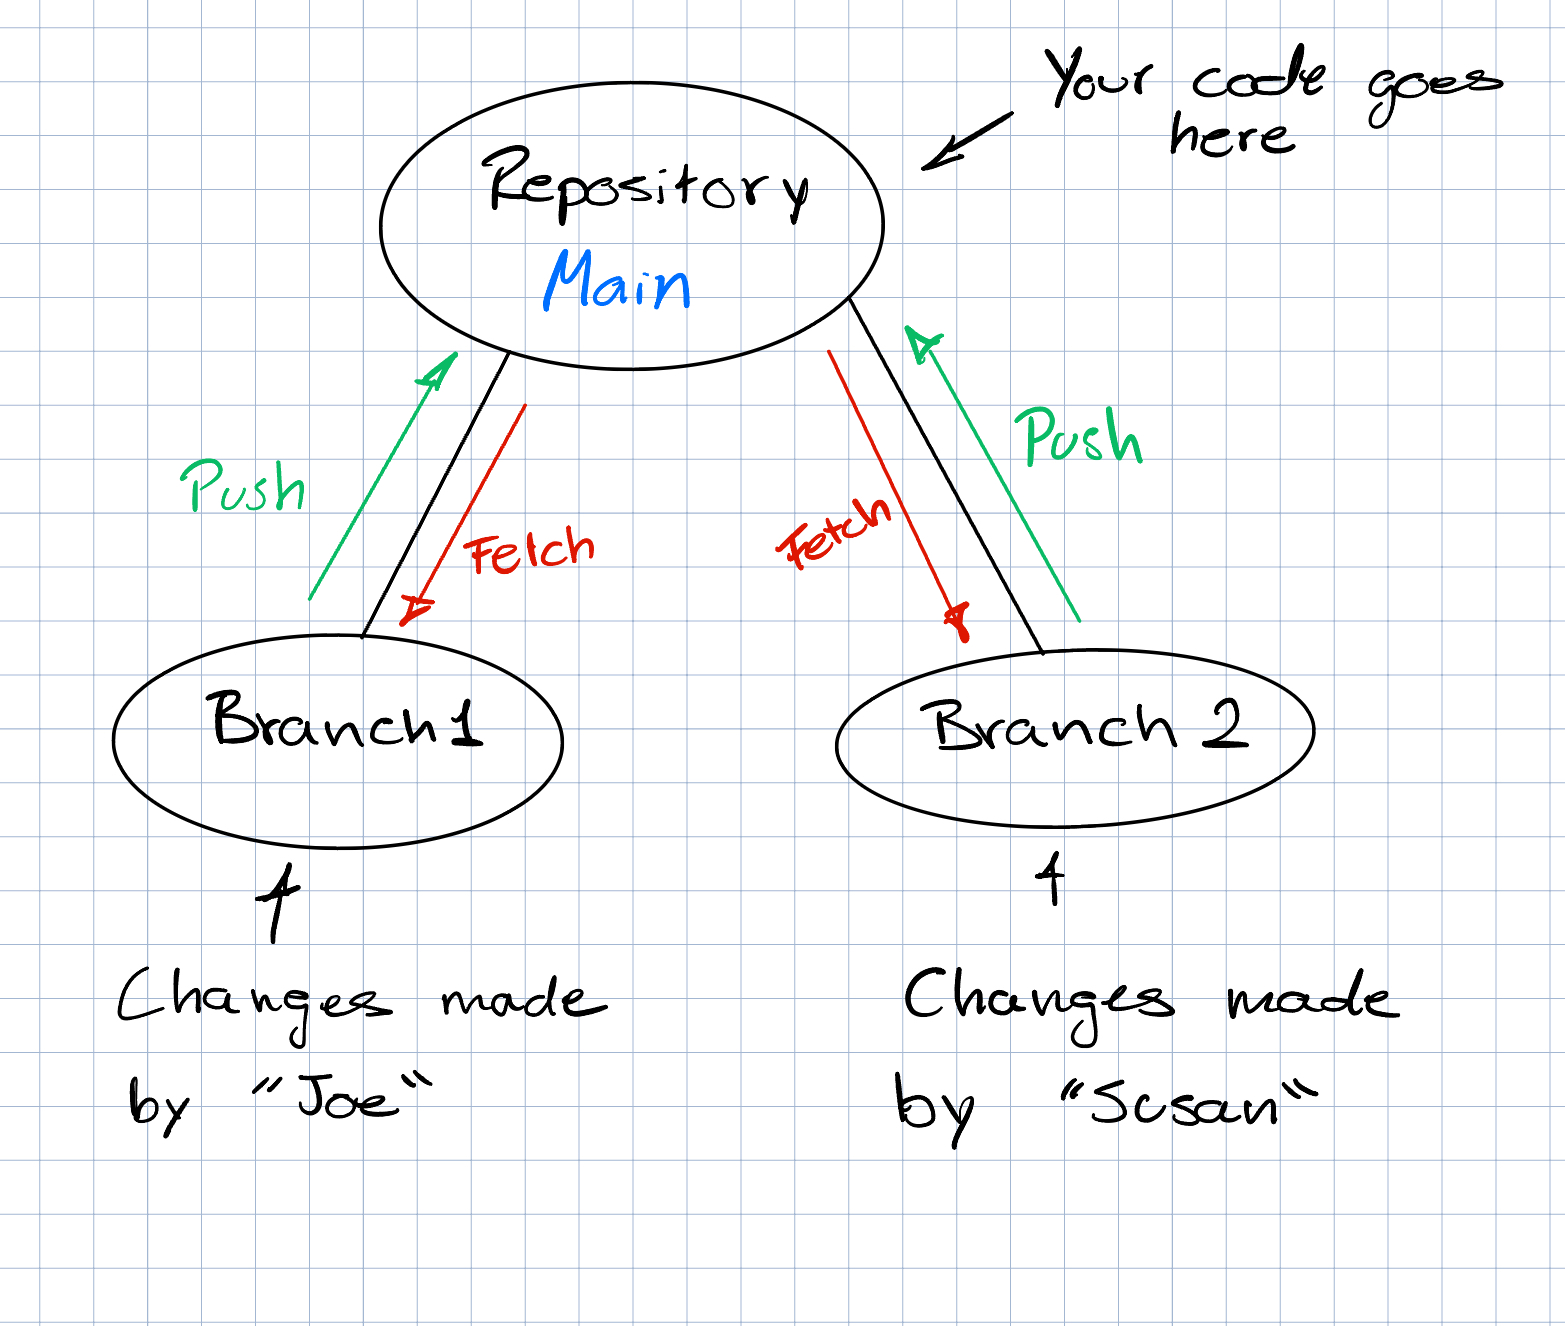 Your code goes
here
Repository
Main
Push
Fetch
Fetch
Push
Branch 1
Branch 2
Changes made
by "Joe"
Changes made
by "Susan"